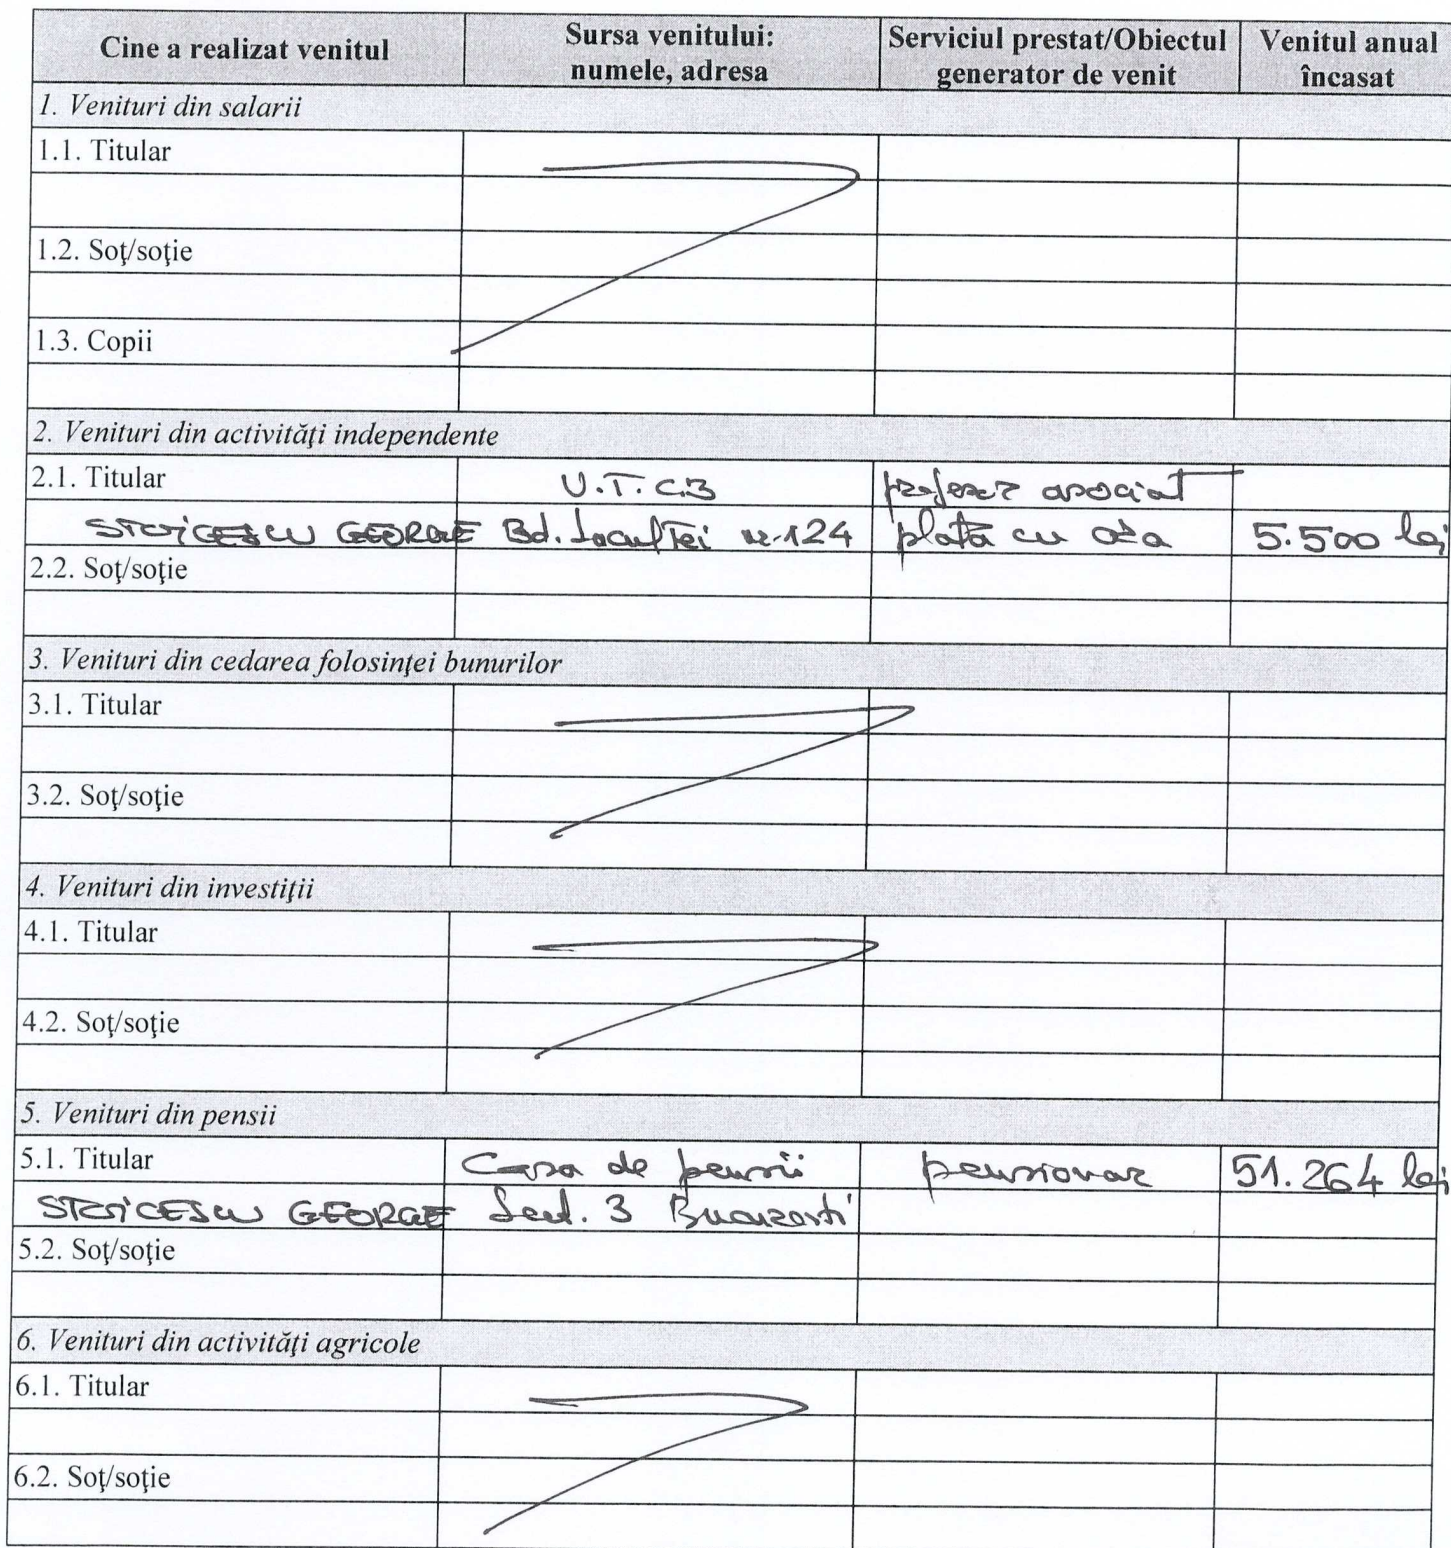 Cine a realizat venitul
Sursa venitului:
numele, adresa
Serviciul prestat/Obiectul
generator de venit
Venitul anual
încasat
1. Venituri din salarii
1.1. Titular
1.2. Soţ/soţie
1.3. Copii
2. Venituri din activităţi independente
2.1. Titular U.T.C.B profesor asociat
STOICESCU GEORGE Bd. Lacul Tei nr.124 plată cu ora 5.500 lei
2.2. Soţ/soţie
3. Venituri din cedarea folosinţei bunurilor
3.1. Titular
3.2. Soţ/soţie
4. Venituri din investiţii
4.1. Titular
4.2. Soţ/soţie
5. Venituri din pensii
5.1. Titular Casa de pensii pensionar 51.264 lei
STOICESCU GEORGE Sect. 3 Bucuresti
5.2. Soţ/soţie
6. Venituri din activităţi agricole
6.1. Titular
6.2. Soţ/soţie